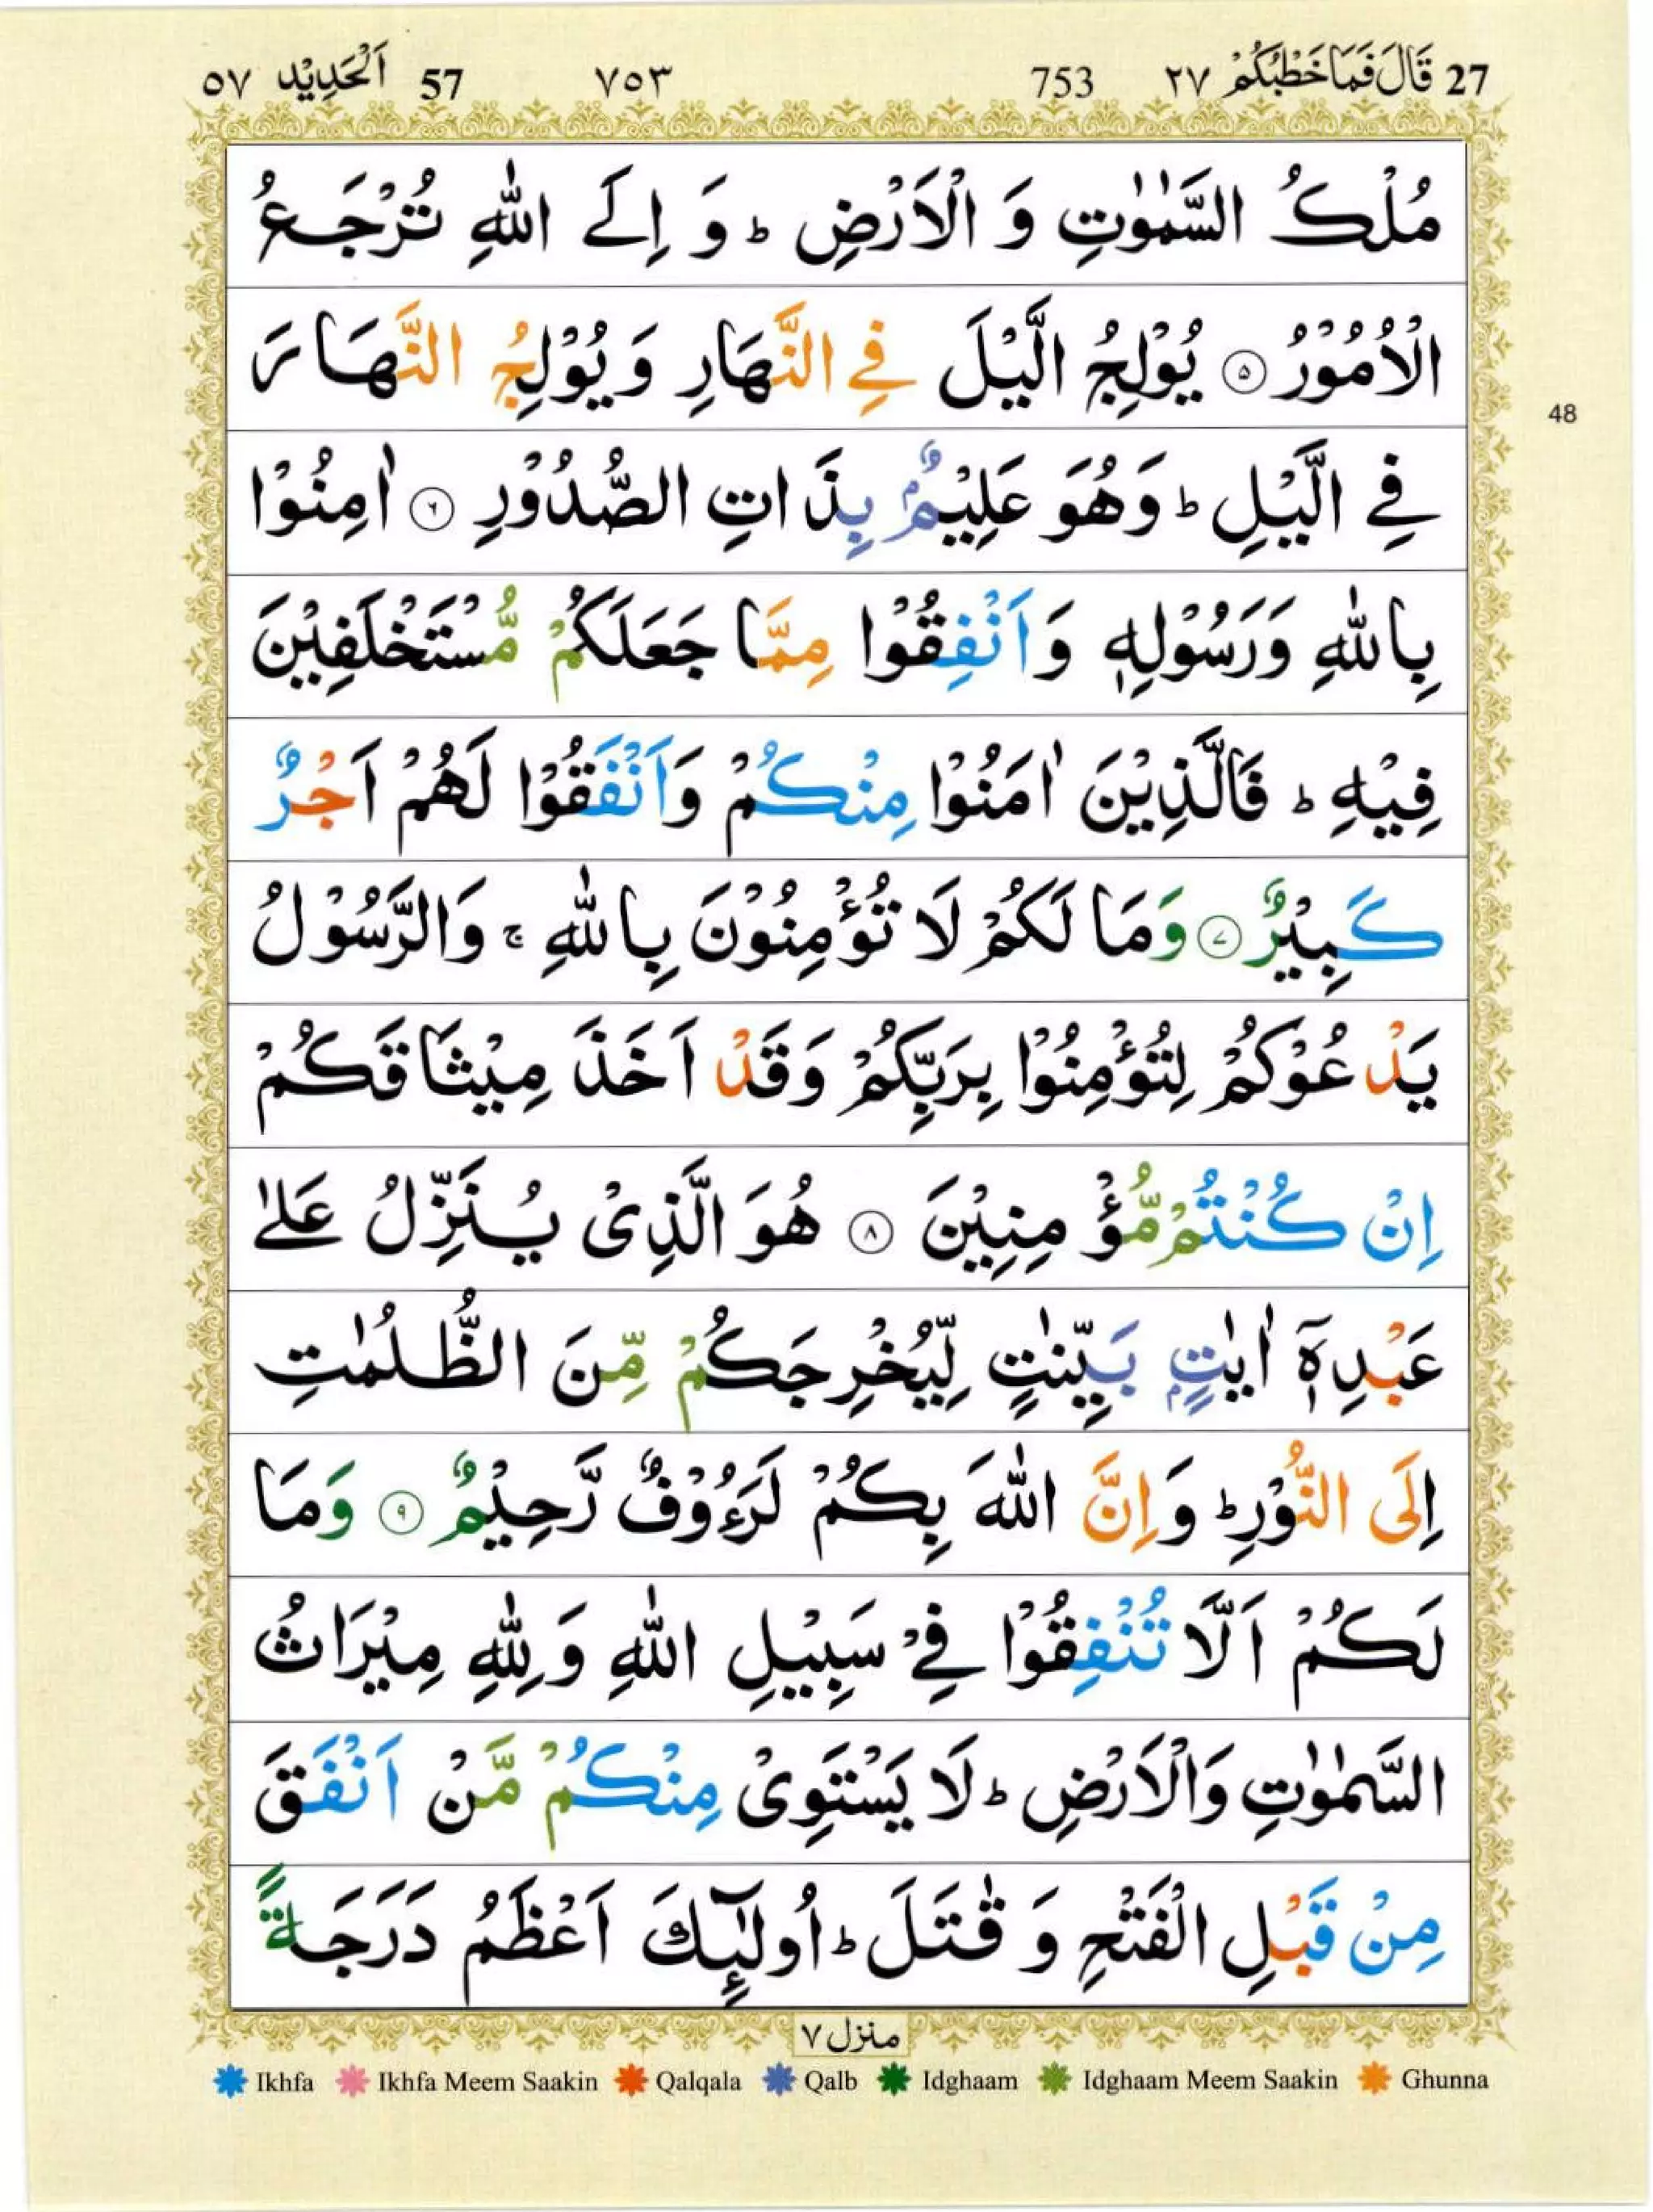 27 قَالَ فَمَا خَطْبُكُمْ ٢٧ 753 ٧٥٣ 57 اَلْحَدِيْد ٥٧
مُلْكُ السَّمٰوٰتِ وَ الْاَرْضِ ؕ وَ اِلَى اللّٰهِ تُرْجَعُ
الْاُمُوْرُ ۝۵ يُوْلِجُ الَّيْلَ فِي النَّهَارِ وَيُوْلِجُ النَّهَارَ
فِي الَّيْلِ ؕ وَهُوَ عَلِيْمٌۢ بِذَاتِ الصُّدُوْرِ ۝۶ اٰمِنُوْا
بِاللّٰهِ وَرَسُوْلِهٖ وَاَنْفِقُوْا مِمَّا جَعَلَكُمْ مُّسْتَخْلَفِيْنَ
فِيْهِ ؕ فَالَّذِيْنَ اٰمَنُوْا مِنْكُمْ وَاَنْفَقُوْا لَهُمْ اَجْرٌ
كَبِيْرٌ ۝۷ وَمَا لَكُمْ لَا تُؤْمِنُوْنَ بِاللّٰهِ ۚ وَالرَّسُوْلُ
يَدْعُوْكُمْ لِتُؤْمِنُوْا بِرَبِّكُمْ وَقَدْ اَخَذَ مِيْثَاقَكُمْ
اِنْ كُنْتُمْ مُّؤْمِنِيْنَ ۝۸ هُوَ الَّذِيْ يُنَزِّلُ عَلٰى
عَبْدِهٖۤ اٰيٰتٍۭ بَيِّنٰتٍ لِّيُخْرِجَكُمْ مِّنَ الظُّلُمٰتِ
اِلَى النُّوْرِ ؕ وَاِنَّ اللّٰهَ بِكُمْ لَرَءُوْفٌ رَّحِيْمٌ ۝۹ وَمَا
لَكُمْ اَلَّا تُنْفِقُوْا فِيْ سَبِيْلِ اللّٰهِ وَلِلّٰهِ مِيْرَاثُ
السَّمٰوٰتِ وَالْاَرْضِ ؕ لَا يَسْتَوِيْ مِنْكُمْ مَّنْ اَنْفَقَ
مِنْ قَبْلِ الْفَتْحِ وَ قٰتَلَ ؕ اُولٰٓئِكَ اَعْظَمُ دَرَجَةً
48
منزل ٧
Ikhfa Ikhfa Meem Saakin Qalqala Qalb Idghaam Idghaam Meem Saakin Ghunna